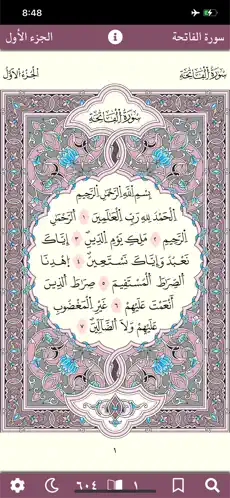 8:48
سورة الفاتحة
الجزء الأول
سُورَةُ الْفَاتِحَةِ
الجُزءُ الأوَّلُ
سُورَةُ الْفَاتِحَةِ
بِسْمِ اللَّهِ الرَّحْمَٰنِ الرَّحِيمِ
الْحَمْدُ لِلَّهِ رَبِّ الْعَالَمِينَ ١ الرَّحْمَٰنِ
الرَّحِيمِ ٢ مَلِكِ يَوْمِ الدِّينِ ٣ إِيَّاكَ
نَعْبُدُ وَإِيَّاكَ نَسْتَعِينُ ٤ اهْدِنَا
الصِّرَاطَ الْمُسْتَقِيمَ ٥ صِرَاطَ الَّذِينَ
أَنْعَمْتَ عَلَيْهِمْ ٦ غَيْرِ الْمَغْضُوبِ
عَلَيْهِمْ وَلَا الضَّالِّينَ ٧
١
١
٦٠٤